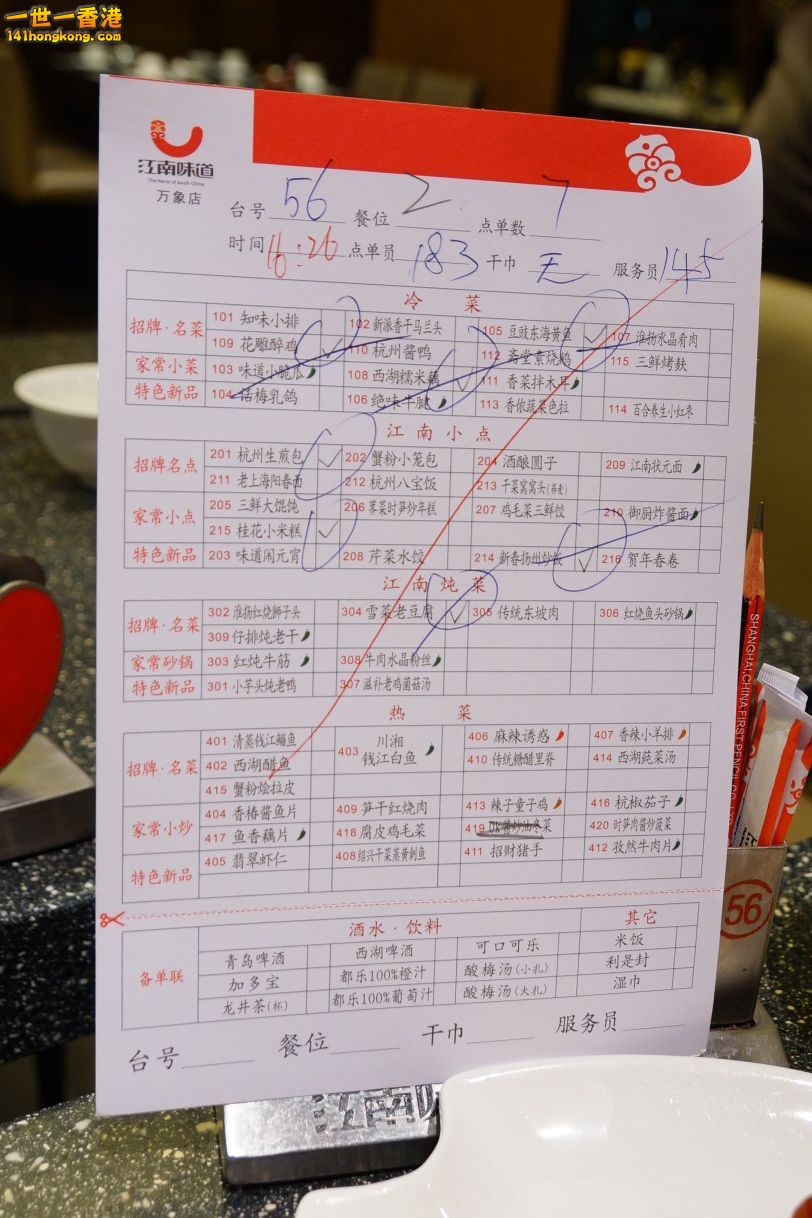 一世一香港
141hongkong.com
江南味道
The flavor of south China
万象店
台号 56 餐位 2 点单数 7
时间 16:26 点单员 183 干巾 无 服务员 145
冷 菜
招牌·名菜 101 知味小排 102 新派香干马兰头 105 豆豉东海黄鱼 107 淮扬水晶肴肉
109 花雕醉鸡 110 杭州酱鸭 112 斋堂素烧鹅 115 三鲜烤麸
家常小菜 103 味道小脆瓜 108 西湖糯米藕 111 香菜拌木耳
特色新品 104 话梅乳鸽 106 绝味牛腱 113 香侬蔬菜色拉 114 百合养生小红枣
江南小点
招牌名点 201 杭州生煎包 202 蟹粉小笼包 204 酒酿圆子 209 江南状元面
211 老上海阳春面 212 杭州八宝饭 213 干菜窝窝头(荞麦)
家常小点 205 三鲜大馄饨 206 荠菜时笋炒年糕 207 鸡毛菜三鲜饺 210 御厨炸酱面
215 桂花小米糕
特色新品 203 味道闹元宵 208 芹菜水饺 214 新春扬州炒饭 216 贺年春卷
江南炖菜
招牌·名菜 302 淮扬红烧狮子头 304 雪菜老豆腐 305 传统东坡肉 306 红烧鱼头砂锅
309 仔排炖老干
家常砂锅 303 红炖牛筋 308 牛肉水晶粉丝
特色新品 301 小芋头炖老鸭 307 滋补老鸡菌菇汤
热 菜
招牌·名菜 401 清蒸钱江鳊鱼 403 川湘钱江白鱼 406 麻辣诱惑 407 香辣小羊排
402 西湖醋鱼 410 传统糖醋里脊 414 西湖莼菜汤
415 蟹粉烩拉皮
家常小炒 404 香椿酱鱼片 409 笋干红烧肉 413 辣子童子鸡 416 杭椒茄子
417 鱼香藕片 418 腐皮鸡毛菜 419 420 时笋肉酱炒菠菜
特色新品 405 翡翠虾仁 408 绍兴干菜蒸黄刺鱼 411 招财猪手 412 孜然牛肉片
酒水·饮料 其它
备单联 青岛啤酒 西湖啤酒 可口可乐 米饭
加多宝 都乐100%橙汁 酸梅汤(小扎) 利是封
龙井茶(杯) 都乐100%葡萄汁 酸梅汤(大扎) 湿巾
台号 餐位 干巾 服务员
SHANGHAI,CHINA FIRST PENCIL CO.
56
江南